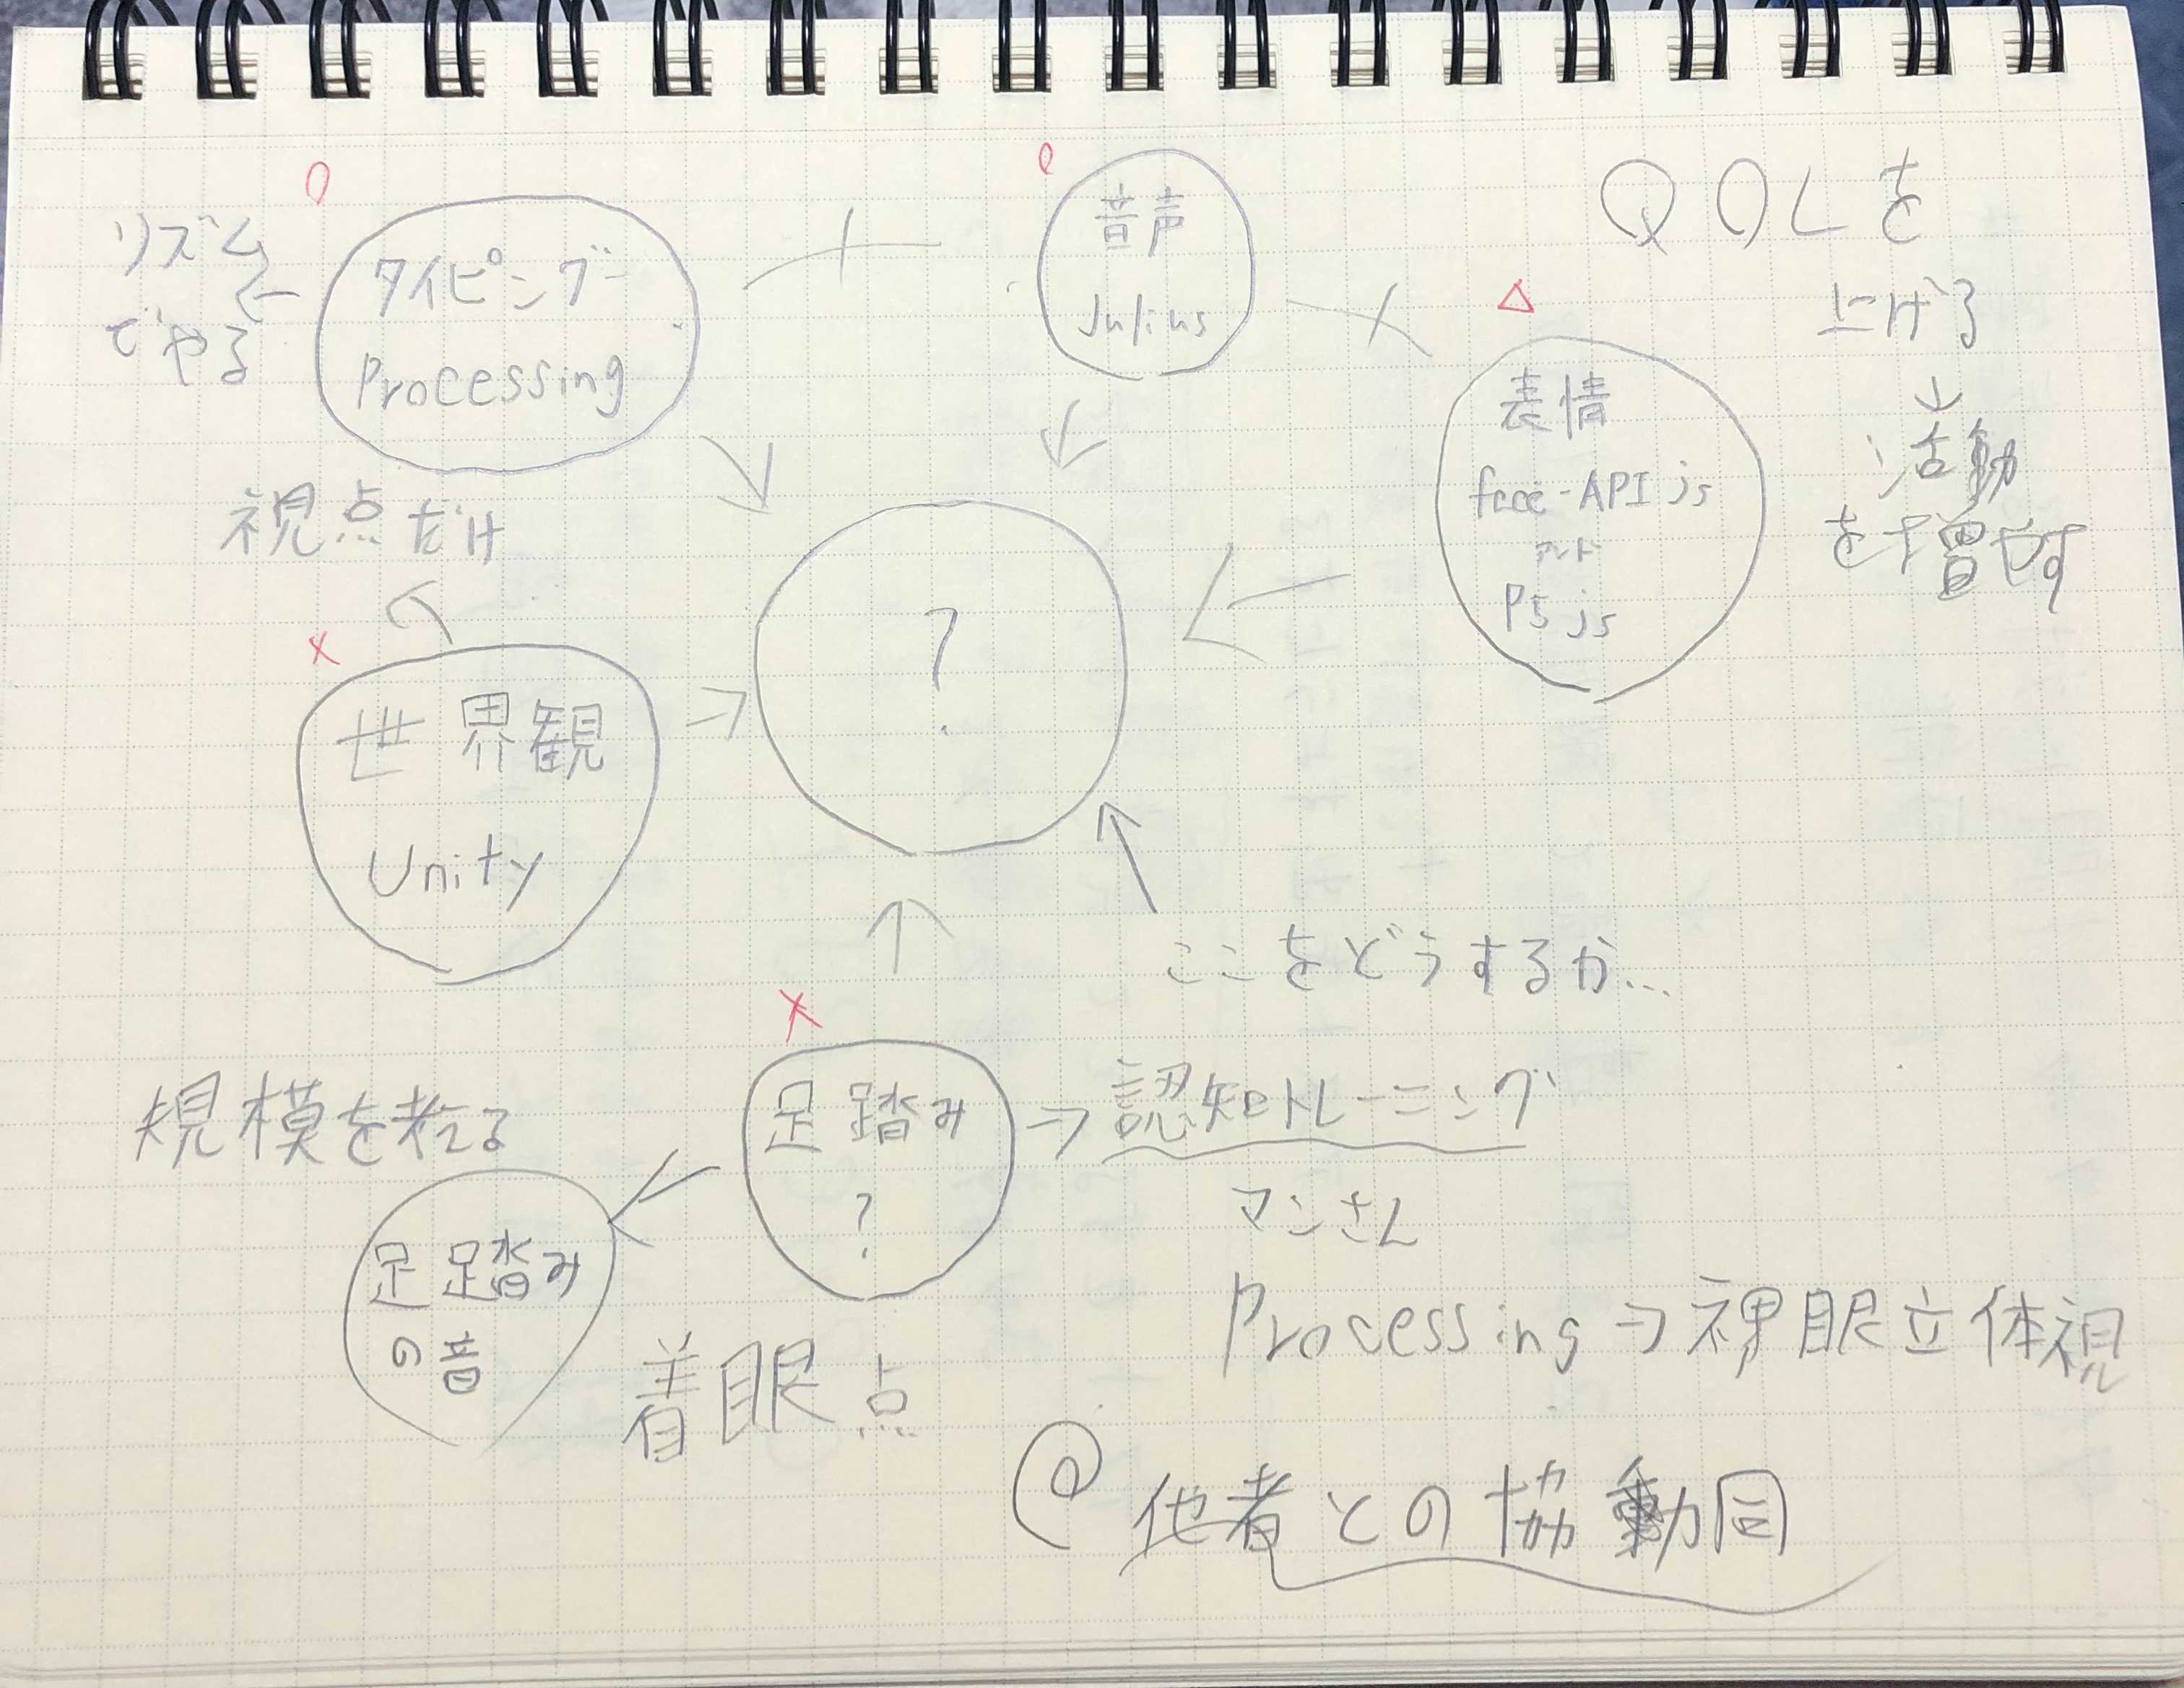 リズム
でやる
タイピング
Processing
音声
Julius
QOLを
上げる
活動
を増やす
表情
face-API js
アンド
P5 js
視点だけ
世界観
Unity
?
ここをどうするか...
足踏み
?
認知トレーニング
マンさん
規模を考える
足踏み
の音
着眼点
Processing→裸眼立体視
@他者との協動同